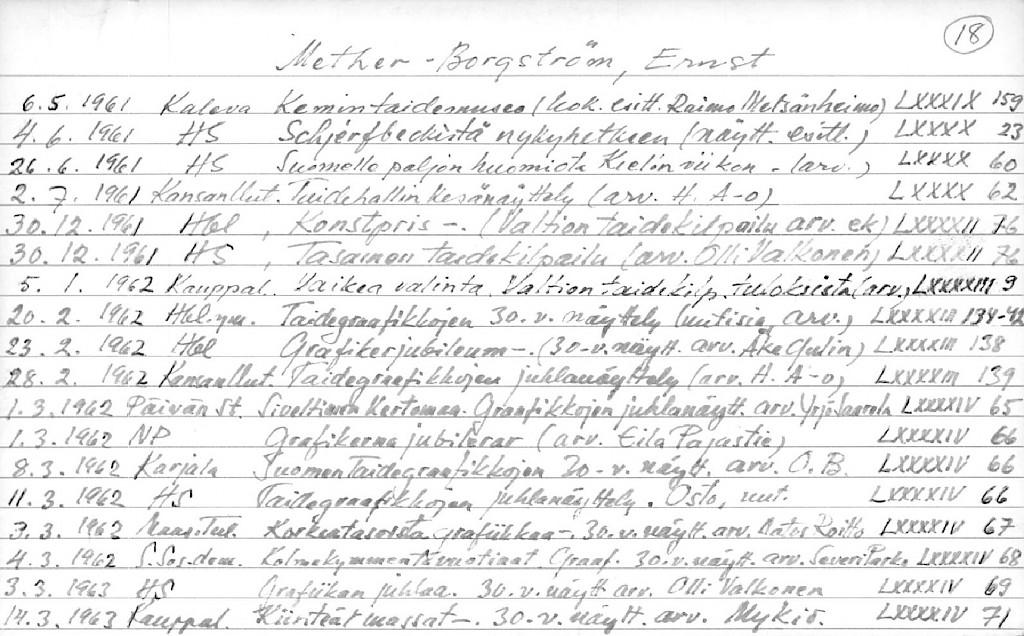 18
Mether-Borgström, Ernst
6.5. 1961 Kaleva Kemin taidemuseo (kok. esitt. Raimo Metsänheimo) LXXXIX 159
4.6. 1961 HS Schjerfbeckistä nykyhetkeen (näytt. esitt.) LXXXX 23
26.6. 1961 HS Suomelle paljon huomiota Kielin viikon - (arv.) LXXXX 60
2.7. 1961 Kansanllut. Taidehallin kesänäyttely (arv. H. A-o) LXXXX 62
30.12.1961 Hbl, Konstpris -. (Valtion taidekilpailu arv. ek) LXXXXII 76
30.12.1961 HS, Tasainen taidekilpailu (arv. Olli Valkonen) LXXXXII 76
5.1. 1962 Kauppal. Vaikea valinta. Valtion taidekilp. tuloksista (arv.) LXXXXIII 9
20.2. 1962 Hbl. ym. Taidegraafikkojen 30.v. näyttely (uutisia, arv.) LXXXXIII 134-42
23.2. 1962 Hbl Grafikerjubileum -. (30-v. näytt. arv. Åke Gulin) LXXXXIII 138
28.2. 1962 Kansanllut. Taidegraafikkojen juhlanäyttely (arv. H. A-o) LXXXXIII 139
1.3. 1962 Päivän St. Siveltimen Kertomaa. Graafikkojen juhlanäytt. arv. Yrjö Saarela LXXXXIV 65
1.3. 1962 NP Grafikerna jubilerar (arv. Eila Pajastie) LXXXXIV 66
8.3. 1962 Karjala Suomen Taidegraafikkojen 30-v. näytt. arv. O.B. LXXXXIV 66
11.3. 1962 HS Taidegraafikkojen juhlanäyttely. Osto, uut. LXXXXIV 66
3.3. 1962 Maas. Tul. Korkeatasoista grafiikkaa -. 30.v. näytt. arv. Matos Roitto LXXXXIV 67
4.3. 1962 S. Sos. dem. Kolmekymmentävuotiaat Graaf. 30.v. näytt. arv. Severi Parko LXXXXIV 68
3.3. 1963 HS Grafiikan juhlaa. 30.v. näytt arv. Olli Valkonen LXXXXIV 69
14.3. 1963 Kauppal. Kiinteät massat -. 30-v. näytt arv. Mykiö. LXXXXIV 71